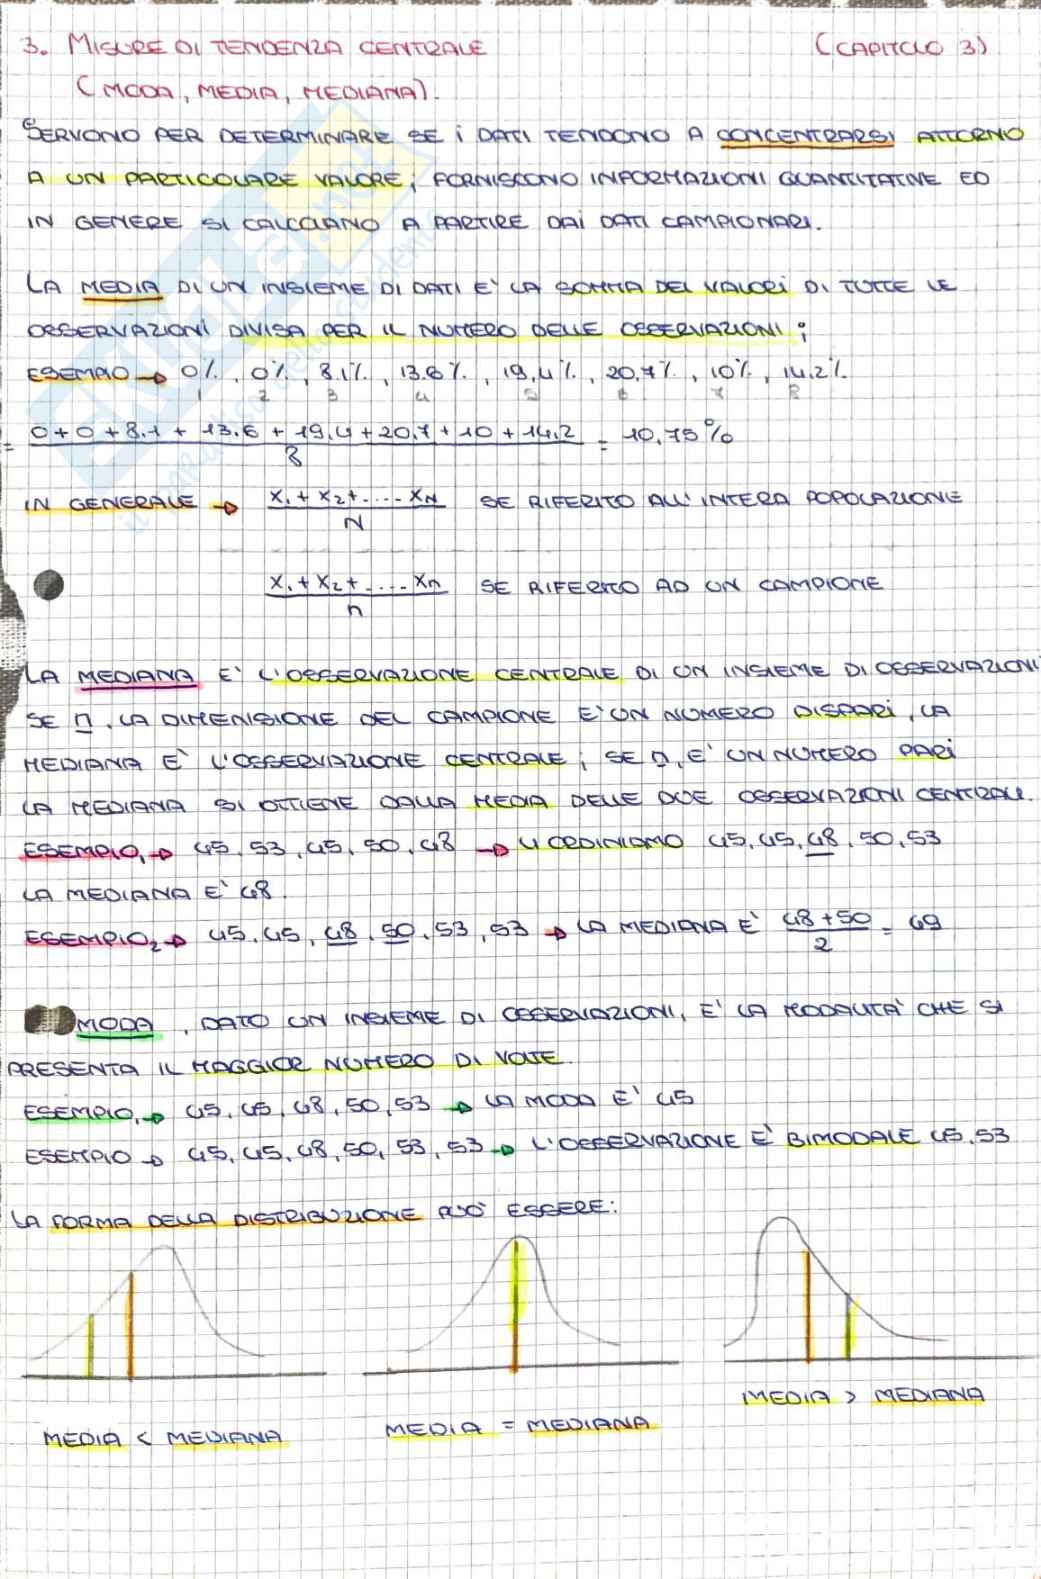 3. MISURE DI TENDENZA CENTRALE (CAPITOLO 3)
(MODA, MEDIA, MEDIANA).
SERVONO PER DETERMINARE SE i DATI TENDONO A CONCENTRARSI ATTORNO
A UN PARTICOLARE VALORE; FORNISCONO INFORMAZIONI QUANTITATIVE ED
IN GENERE SI CALCOLANO A PARTIRE DAI DATI CAMPIONARI.
LA MEDIA DI UN INSIEME DI DATI E' LA SOMMA DEI VALORI DI TUTTE LE
OSSERVAZIONI DIVISA PER IL NUMERO DELLE OSSERVAZIONI;
ESEMPIO → 0%, 0%, 8.1%, 13.6%, 19,4%, 20,7%, 10%, 14.2%
1 2 3 4 5 6 7 8
= 0+0+8.1+13.6+19.4+20.7+10+14.2 / 8 = 10,75%
IN GENERALE → x₁+x₂+....xN / N SE RIFERITO ALL'INTERA POPOLAZIONE
x₁+x₂+....xn / n SE RIFERITO AD UN CAMPIONE
LA MEDIANA E' L'OSSERVAZIONE CENTRALE DI UN INSIEME DI OSSERVAZIONI
SE n, LA DIMENSIONE DEL CAMPIONE E' UN NUMERO DISPARI, LA
MEDIANA E' L'OSSERVAZIONE CENTRALE; SE n, E' UN NUMERO PARI
LA MEDIANA SI OTTIENE DALLA MEDIA DELLE DUE OSSERVAZIONI CENTRALI.
ESEMPIO₁ → 45, 53, 45, 50, 48 → LI ORDINIAMO 45, 45, 48, 50, 53
LA MEDIANA E' 48.
ESEMPIO₂ → 45, 45, 48, 50, 53, 53 → LA MEDIANA E' 48+50 / 2 = 49
MODA, DATO UN INSIEME DI OSSERVAZIONI, E' LA MODALITA' CHE SI
PRESENTA IL MAGGIOR NUMERO DI VOLTE.
ESEMPIO₁ → 45, 45, 48, 50, 53 → LA MODA E' 45
ESEMPIO → 45, 45, 48, 50, 53, 53 → L'OSSERVAZIONE E' BIMODALE 45, 53
LA FORMA DELLA DISTRIBUZIONE PUO' ESSERE:
MEDIA < MEDIANA MEDIA = MEDIANA MEDIA > MEDIANA